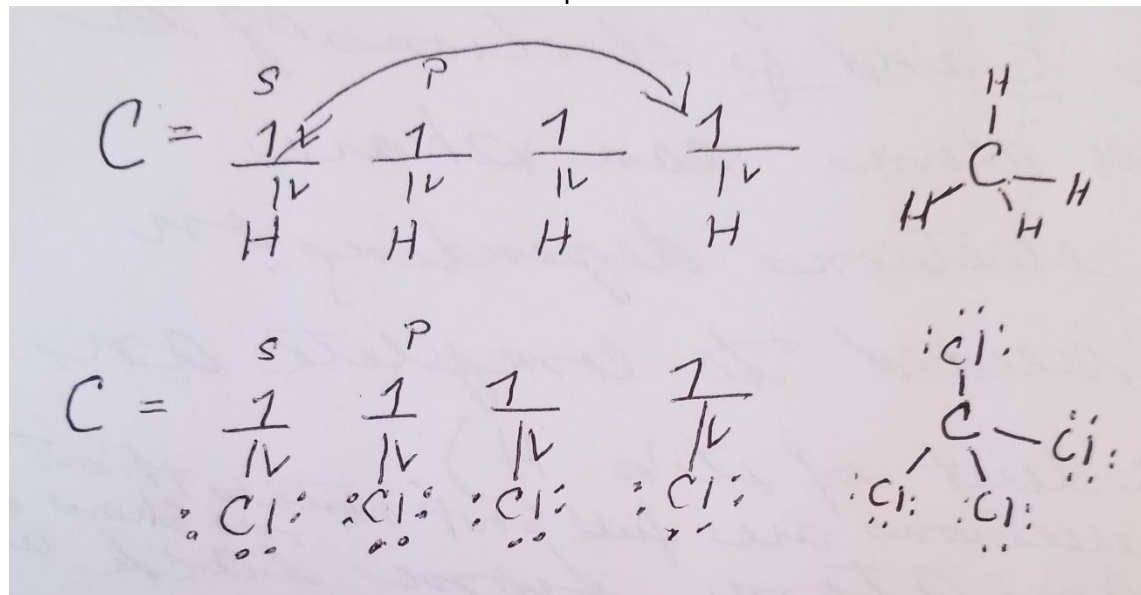 S P
C = 1 1 1 1
H H H H
H
C
H H H
S P
C = 1 1 1 1
:Cl: :Cl: :Cl: :Cl:
:Cl:
C Cl:
:Cl: :Cl: